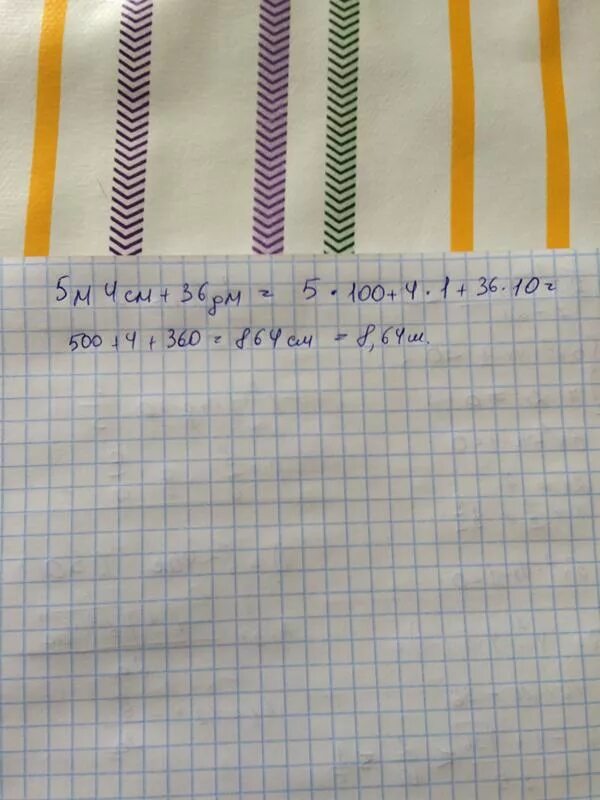 5м 4см + 36дм = 5 · 100 + 4 · 1 + 36 · 10 =
500 + 4 + 360 = 864 см = 8,64м.